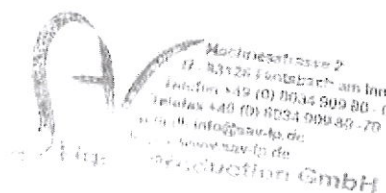 Hochriesstrasse 2
D - 83126 Flintsbach am Inn
Telefon +49 (0) 8034 909 80 -
Telefax +49 (0) 8034 909 80 -70
info@sav-lp.de
www.sav-lp.de
Production GmbH